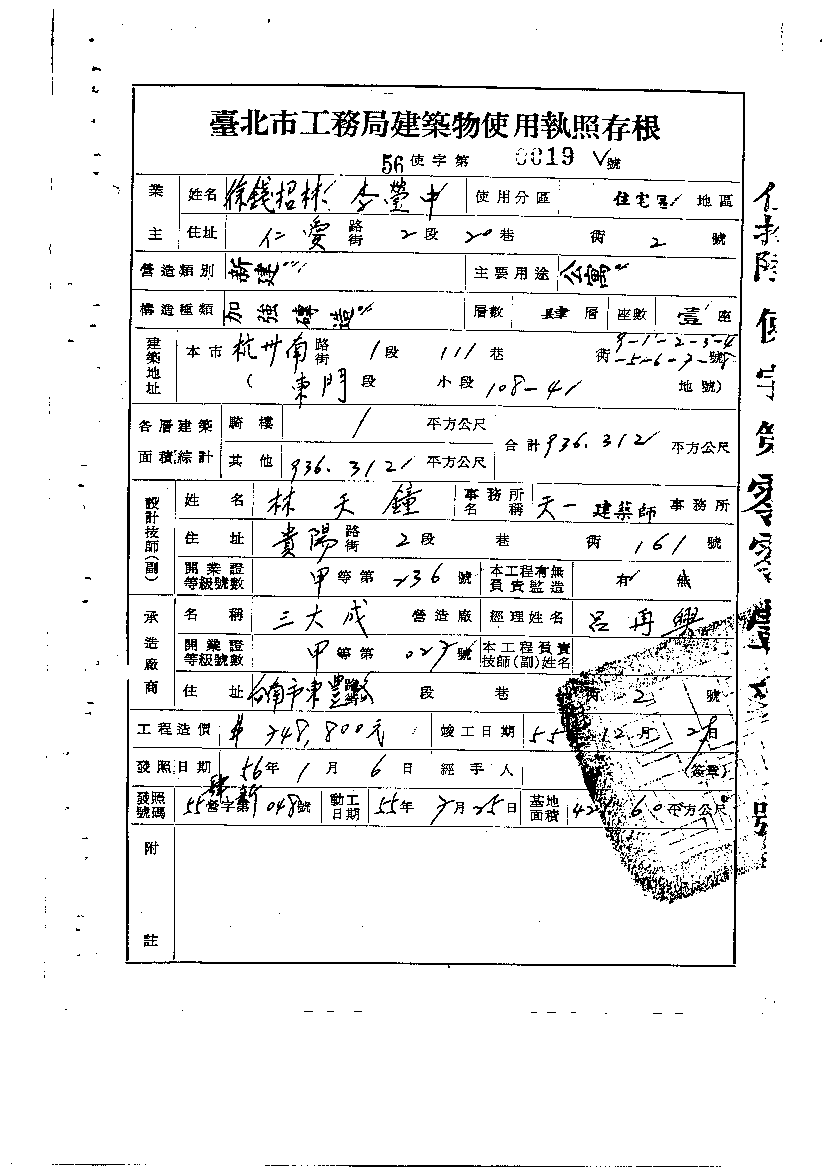 臺北市工務局建築物使用執照存根
56使字第 0019 號
業主 姓名 徐錢招林 李瑩中 使用分區 住宅區 地區
住址 仁愛 路街 2段 20巷 衖 2 號
營造類別 新建 主要用途 公寓
構造種類 加強磚造 層數 肆層 座數 壹座
建築地址 本市 杭州南 路街 1段 111巷 衖 9-1-2-3-4-5-6-7-8號
(東門段 小段 108-41 地號)
各層建築面積綜計 騎樓 / 平方公尺 合計 936.312 平方公尺
其他 936.312 平方公尺
設計技師(副) 姓名 林天鐘 事務所名稱 天一建築師事務所
住址 貴陽 路街 2段 巷 衖 161 號
開業證等級號數 甲等第 236 號 本工程有無負責監造 有 無
承造廠商 名稱 三大成 營造廠 經理姓名 呂再興
開業證等級號數 甲等第 027號 本工程負責技師(副)姓名
住址 台南市東豐路 段 巷 衖 2 號
工程造價 748,800元 竣工日期 55年12月 日
發照日期 56年1月6日 經手人 (簽章)
發照號碼 55營字第048號 動工日期 55年7月25日 基地面積 60平方公尺
附註
伍拾陸使字第零零壹 號